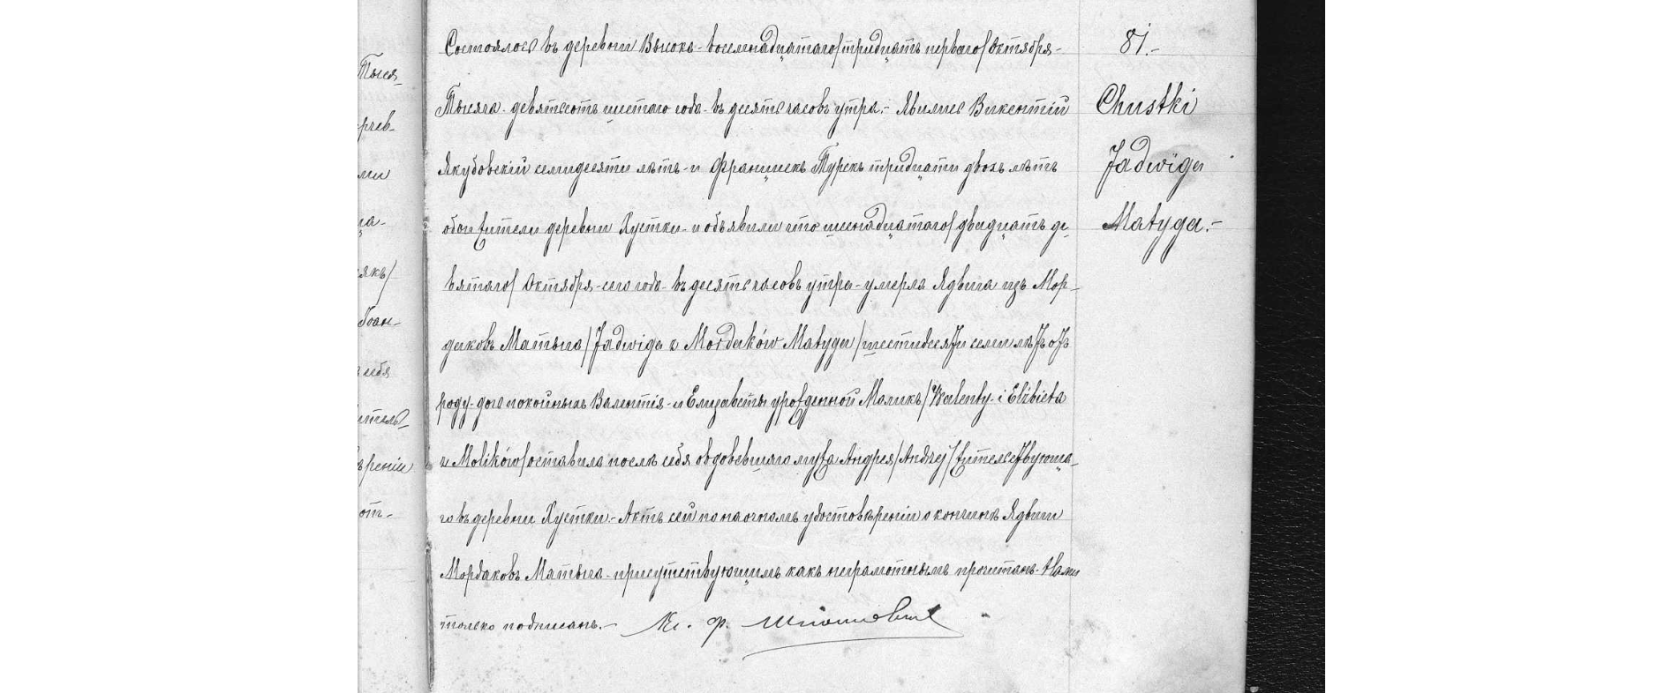 Состоялось въ деревни Высока восемнадцатаго/тридцать перваго/Октября
81.-
Тысяча девятьсотъ шестаго года въ десять часовъ утра.- Явились Викентій
Chustki
Якубовскій семидесяти лѣтъ и Францишекъ Турекъ тридцати двохъ лѣтъ
Jadwiga
обои жители деревни Хустки и объявили что шеснадцатаго/двидцать де-
Matyga.-
вятаго/Октября сего года въ десять часовъ утра умерла Ядвига изъ Мор-
даковъ Матыга/Jadwiga z Mordaków Matyga/шестидесяти семи лѣтъ отъ
роду дочь покойныхъ Валентія и Елизаветы урожденной Моликъ/Walenty i Elżbieta
z Molików/оставила послѣ себя овдовевшаго мужа Андрея/Andrzej/жительствующа-
го въ деревни Хустки.- Актъ сей по наочномъ удостовѣреніи о кончинѣ Ядвиги
Мордаковъ Матыга присутствующимъ какъ неграмотнымъ прочитанъ Нами
только подписанъ.-
Тыся-
рев-
ми
якъ/
боан-
себя
ѣреніи
от-